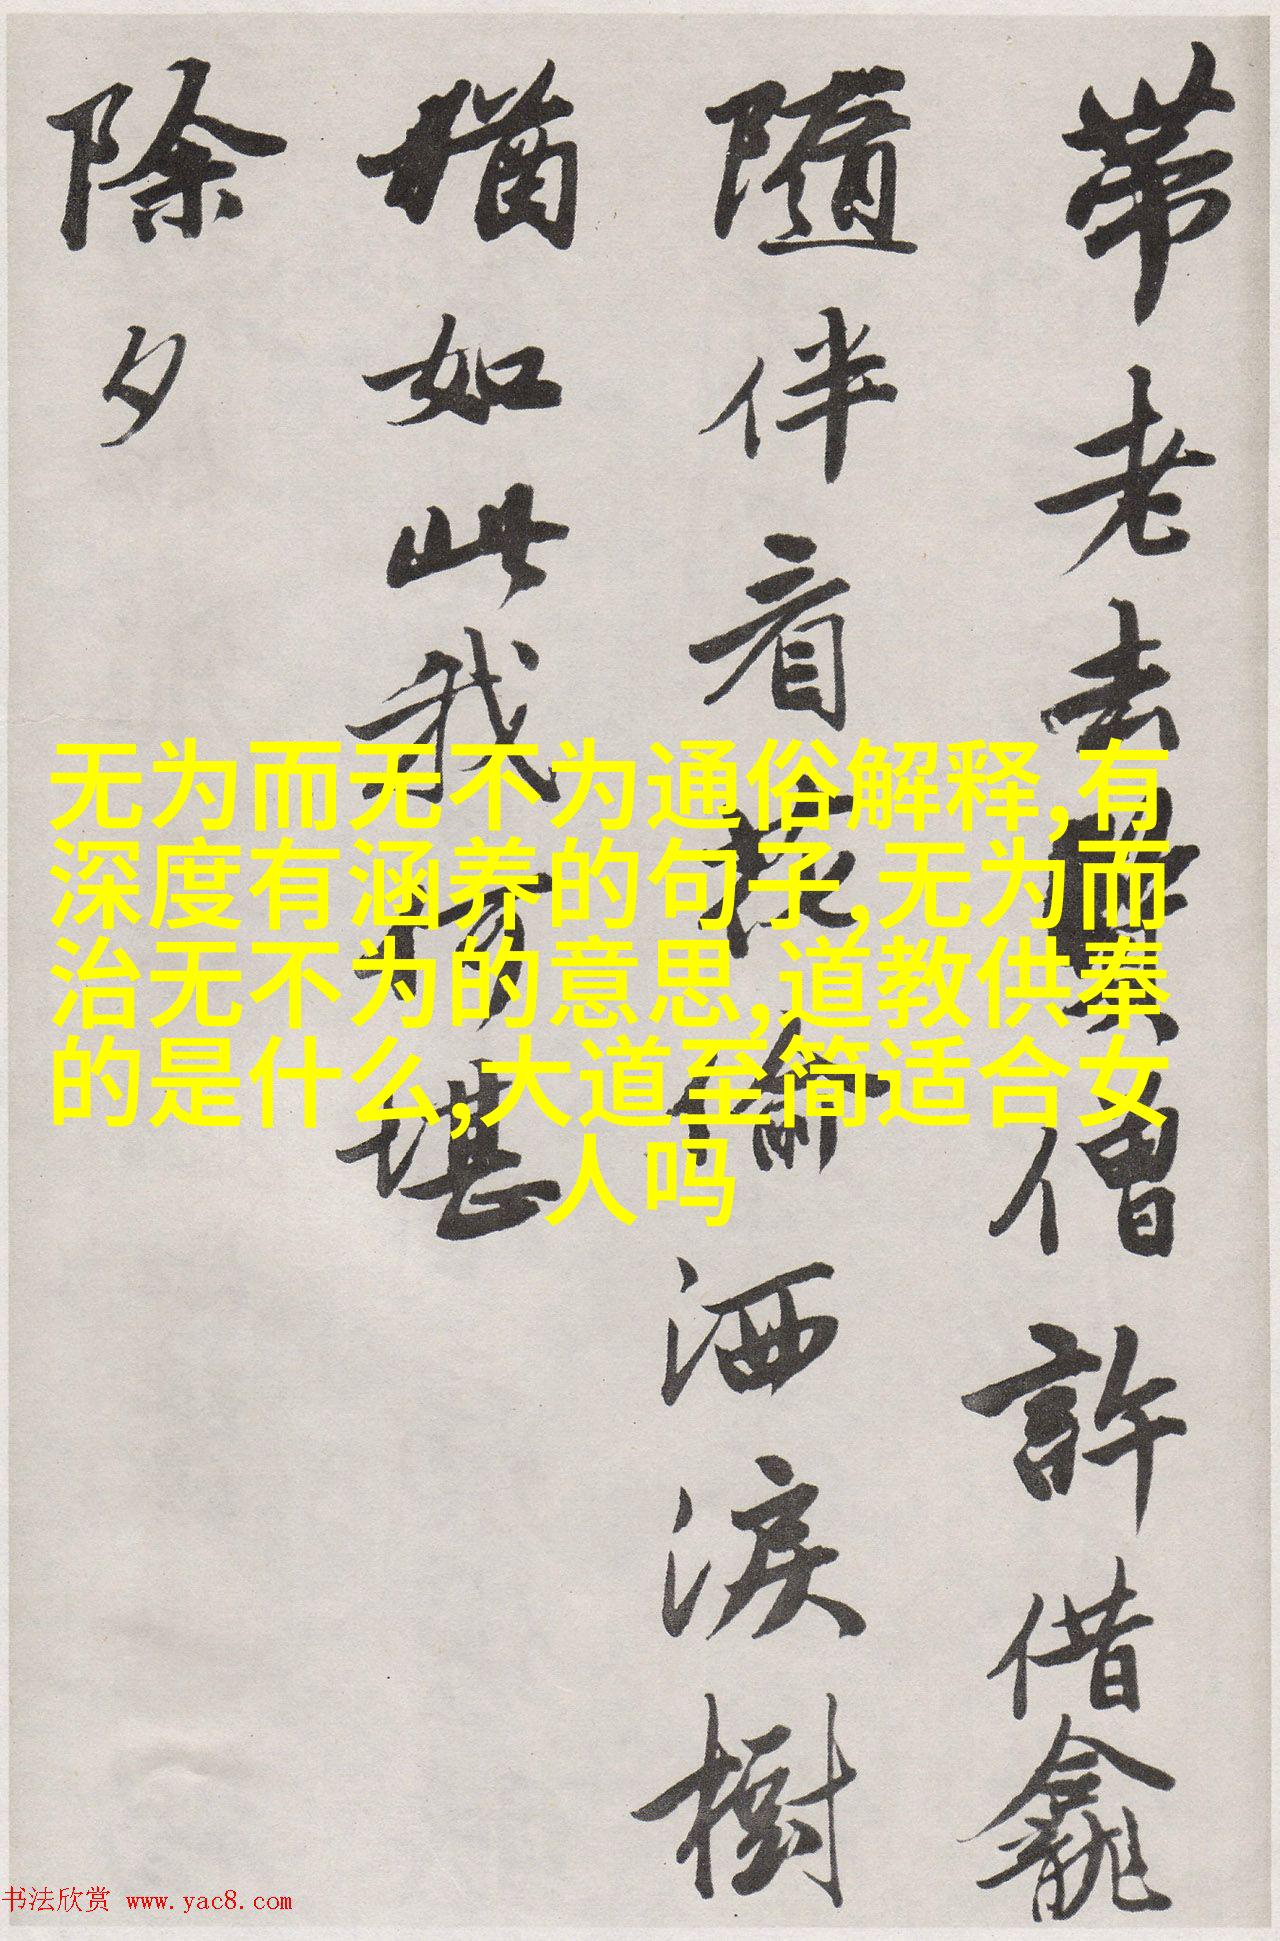 帶老去僧許借龕
隨伴看花偷洒淚樹
猶如此我何堪
除夕
无为而无不为通俗解释,有
深度有涵养的句子,无为而
治无不为的意思,道教供奉
的是什么,大道至简适合女
人吗
书法欣赏 www.yac8.com